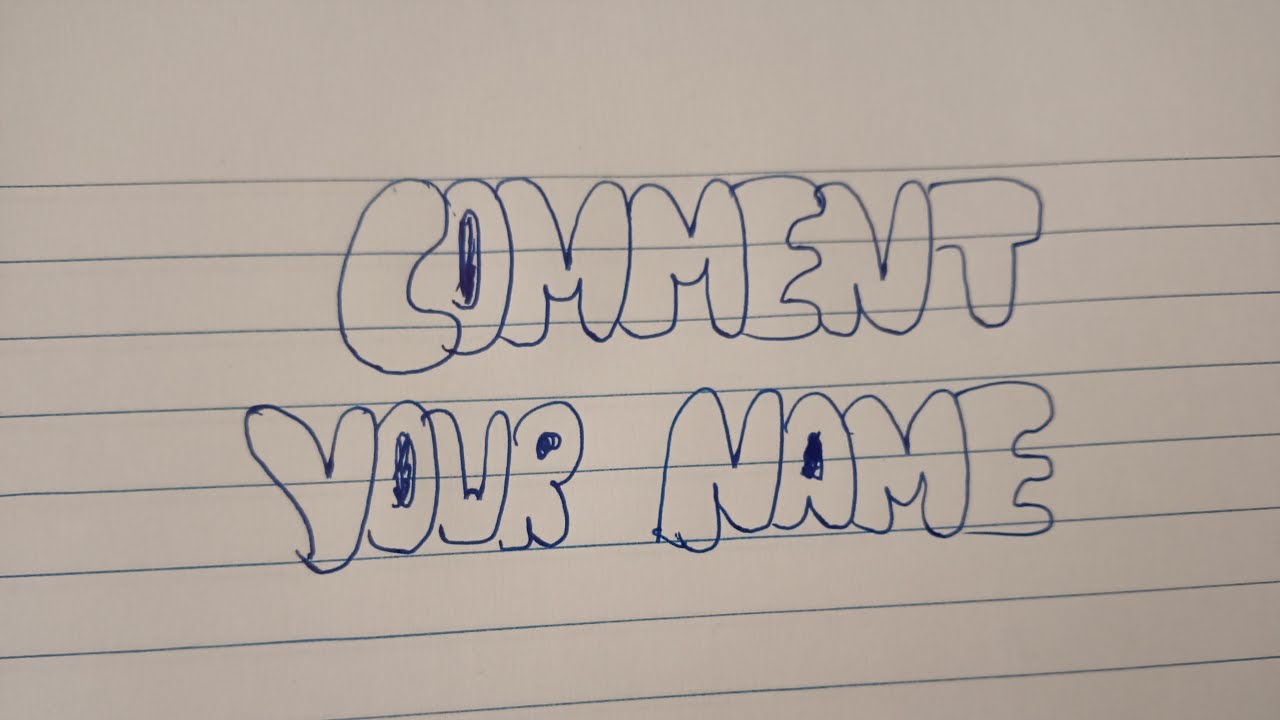 COMMENT
YOUR NAME